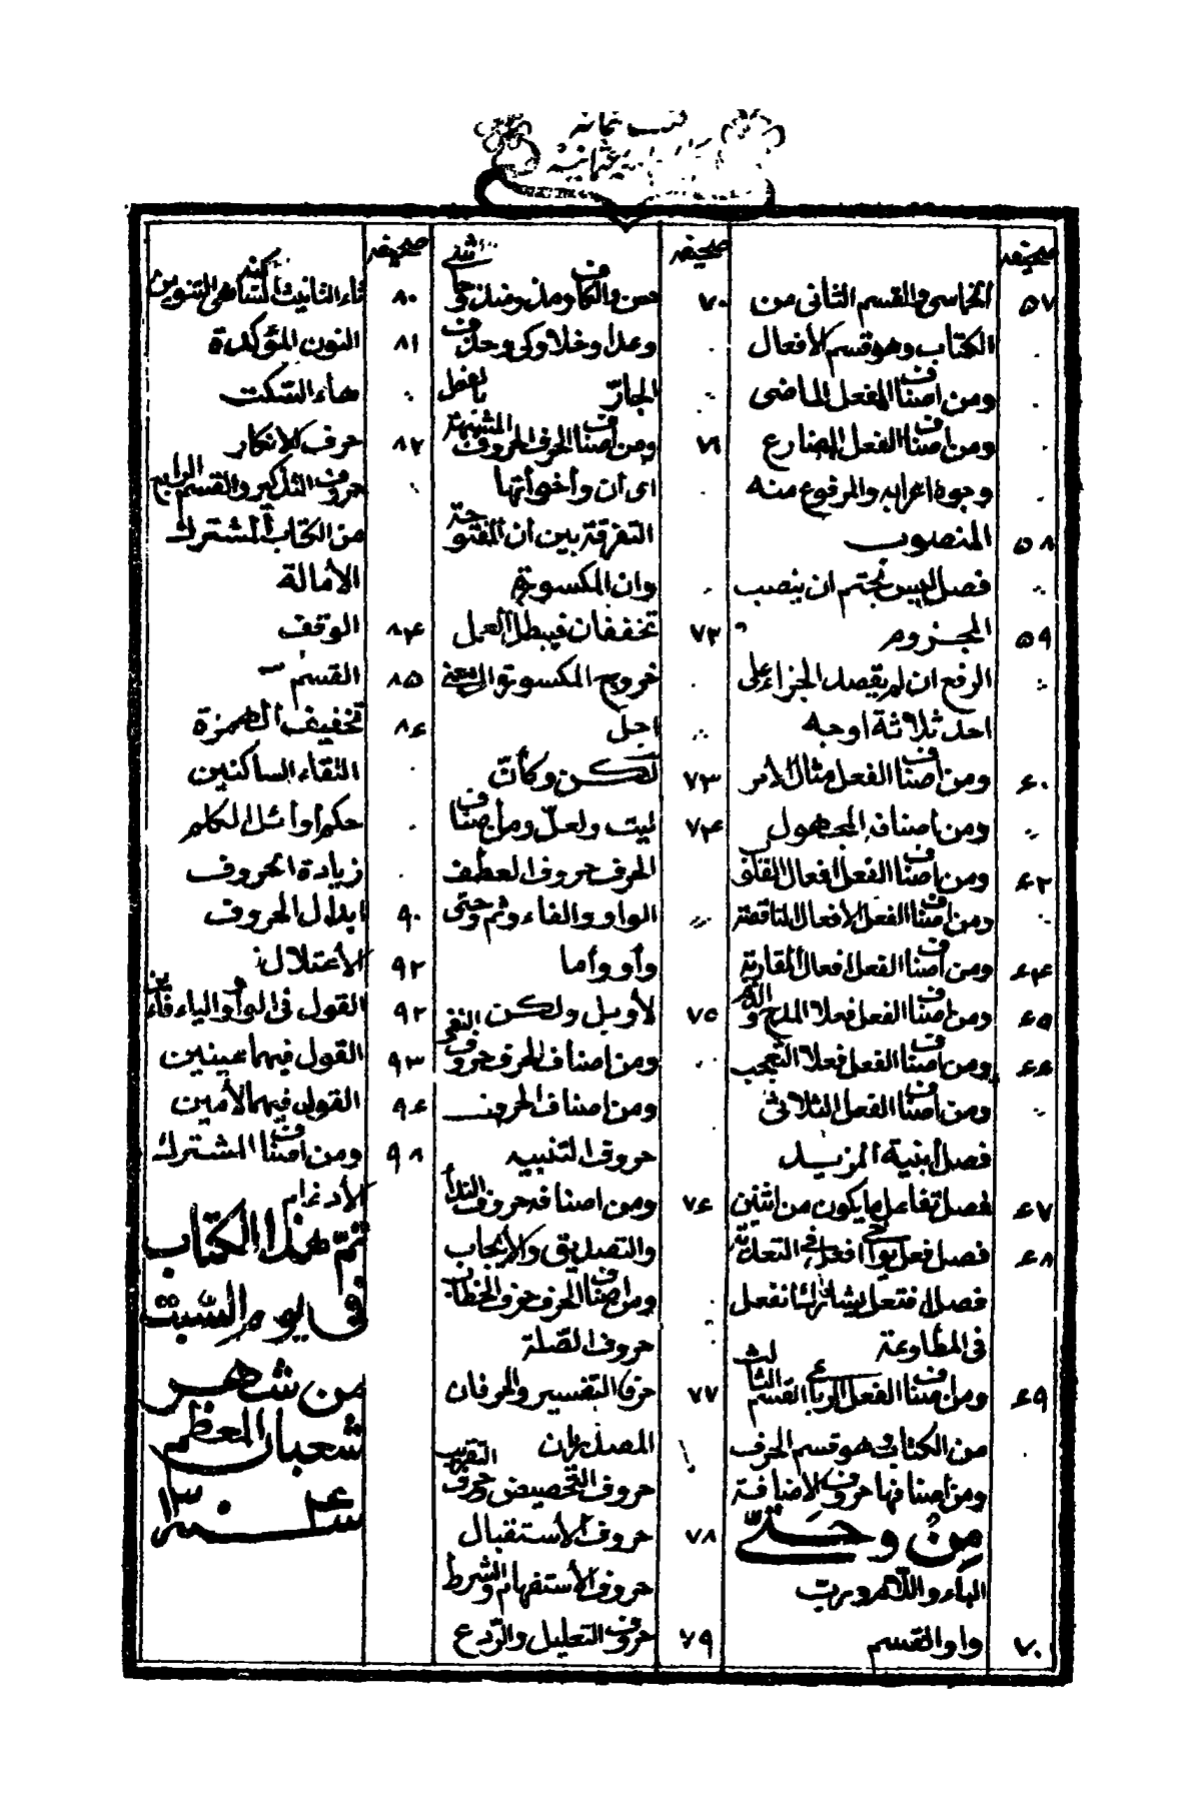 صحيفه
٥٧ الخماسى والقسم الثانى من
الكتاب وهو قسم الأفعال
ومن اصناف الفعل الماضى
ومن اصناف الفعل المضارع
وجوه اعرابه والمرفوع منه
٥٨ المنصوب
فصل ليس بحتم ان ينصب
٥٩ المجزوم
الرفع ان لم يقصد الجزاء على
احد ثلاثة اوجه
٦٠ ومن اصناف الفعل مثال الأمر
ومن اصنافه المجهول
٦٢ ومن اصناف الفعل افعال القلوب
ومن اصناف الفعل الأفعال الناقصة
٦٤ ومن اصناف الفعل افعال المقاربة
٦٥ ومن اصناف الفعل فعلا المدح والذم
٦٦ ومن اصناف الفعل فعلا التعجب
ومن اصناف الفعل الثلاثى
فصل أبنية المزيد
٦٧ فصل تفاعل ما يكون من اثنين
٦٨ فصل فعل يواخى افعل فى التعدية
فصل افتعل يشارك انفعل
فى المطاوعة
٦٩ ومن اصناف الفعل الرباعى القسم الثالث
من الكتاب وهو قسم الحرف
ومن اصنافها حروف الإضافة
مِنْ وحَتّى
الباء واللام ورب
٧٠ واو القسم
صحيفه
٧٠ عن والكاف ومذ ومنذ وحاشى
وعدا وخلا وكى وحذف
الجارّ
٧١ ومن اصناف الحرف الحروف المشبهة بالفعل
اى ان وأخواتها
التفرقة بين ان المفتوحة
وان المكسورة
٧٢ تخففان فيبطل العمل
خروج المكسورة الى معنى
اجل
٧٣ لكن وكأنّ
٧٤ ليت ولعلّ ومن اصناف
الحرف حروف العطف
الواو والفاء وثم وحتى
وأو وأما
٧٥ لا وبل ولكن
ومن اصناف الحرف حروف النفى
ومن اصناف الحروف
حروف التنبيه
٧٦ ومن اصنافه حروف الندأ
والتصديق والإيجاب
ومن اصناف الحرف حرف الخطاب
حروف الصّلة
٧٧ حرفا التفسير والحرفان
المصدريان
حروف التحضيض وحرف التقريب
٧٨ حروف الأستقبال
حروف الأستفهام والشرط
٧٩ حروف التعليل والرّدع
صحيفه
٨٠ تاء التانيث الساكنة هى التنوين
٨١ النون المؤكدة
هاء السّكت
٨٢ حرف الانكار
حروف التذكير والقسم الرابع
من الكتاب المشترك
الأمالة
٨٤ الوقف
٨٥ القسم
٨٦ تخفيف الهمزة
التقاء الساكنين
حكم أوائل الكلم
زيادة الحروف
٩٠ ابدال الحروف
٩٢ الأعتلال
٩٢ القول فى الواو والياء فائين
٩٣ القول فيهما عينين
٩٦ القول فيهما لأمين
٩٨ ومن اصناف المشترك
الأدغام
تمّ هذا الكتاب
فى يوم السّبت
من شهر
شعبان المعظم